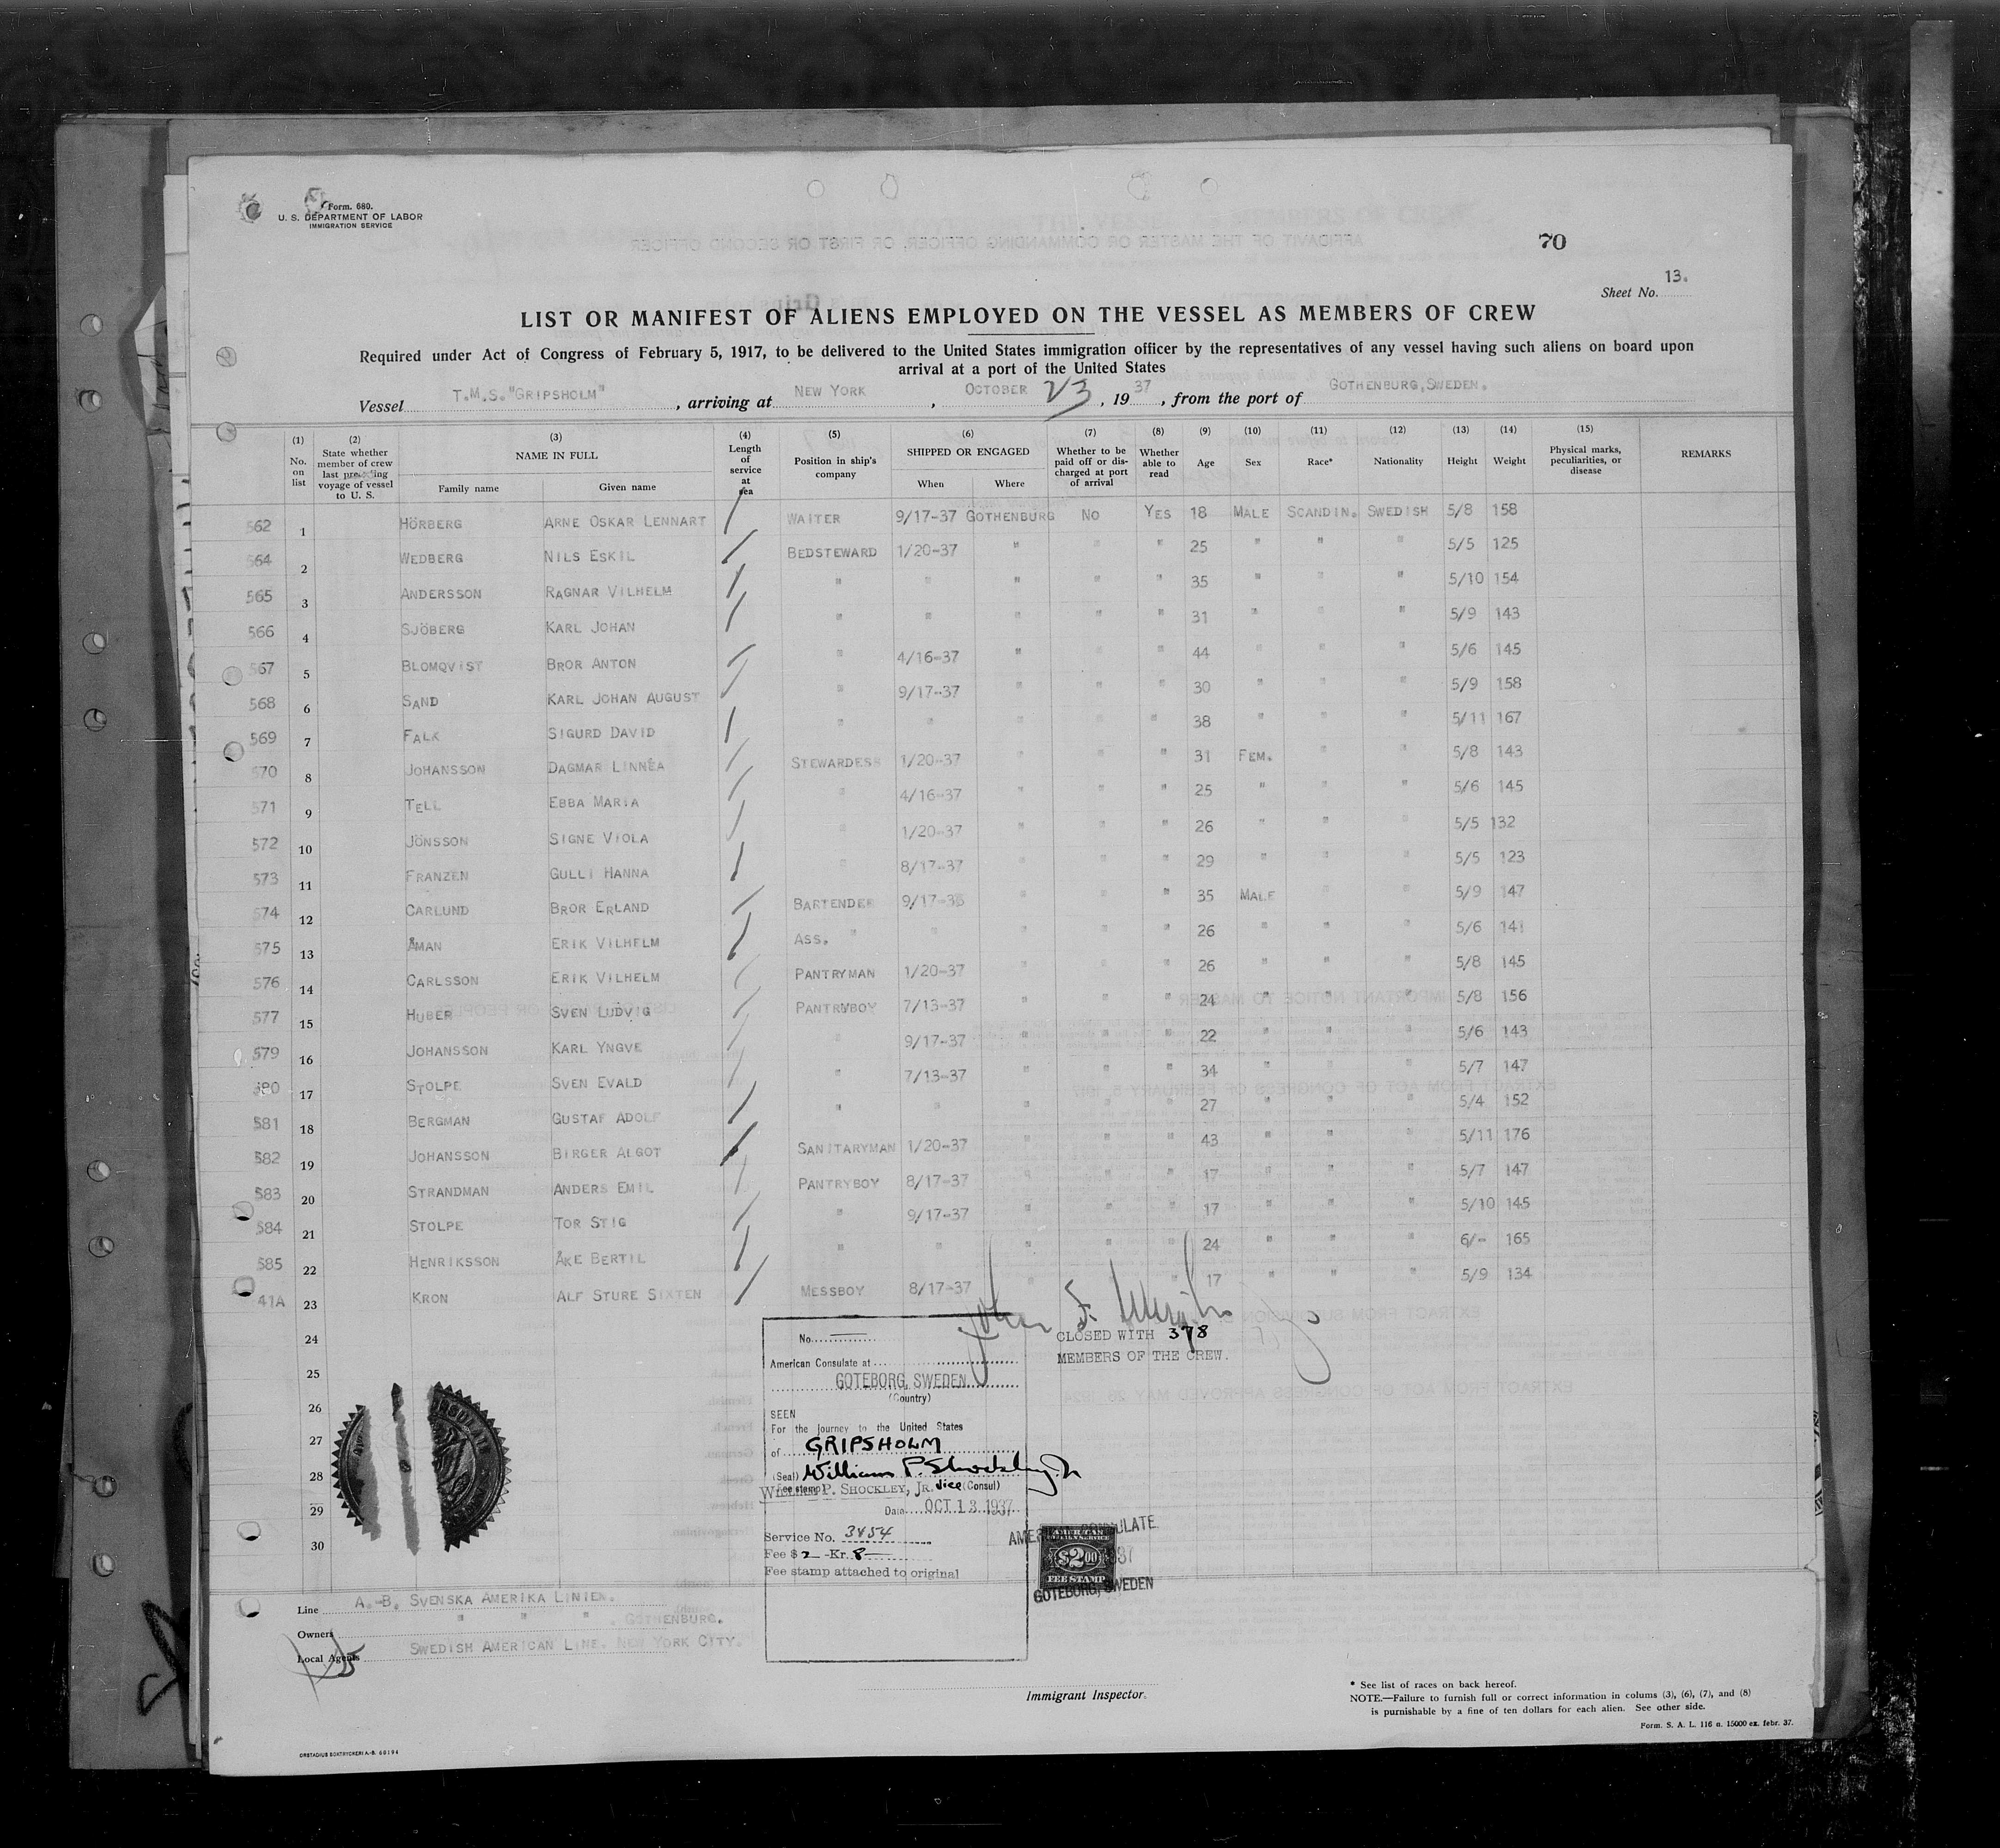 Form. 680.
U. S. DEPARTMENT OF LABOR
IMMIGRATION SERVICE
70
Sheet No. 13.
LIST OR MANIFEST OF ALIENS EMPLOYED ON THE VESSEL AS MEMBERS OF CREW
Required under Act of Congress of February 5, 1917, to be delivered to the United States immigration officer by the representatives of any vessel having such aliens on board upon
arrival at a port of the United States
Vessel T.M.S."GRIPSHOLM", arriving at NEW YORK, OCTOBER 23, 1937, from the port of GOTHENBURG,SWEDEN.
(1) No. on list (2) State whether member of crew last preceding voyage of vessel to U. S. (3) NAME IN FULL Family name Given name (4) Length of service at sea (5) Position in ship's company (6) SHIPPED OR ENGAGED When Where (7) Whether to be paid off or discharged at port of arrival (8) Whether able to read (9) Age (10) Sex (11) Race* (12) Nationality (13) Height (14) Weight (15) Physical marks, peculiarities, or disease REMARKS
562 1 HÖRBERG ARNE OSKAR LENNART / WAITER 9/17-37 GOTHENBURG NO YES 18 MALE SCANDIN. SWEDISH 5/8 158
564 2 WEDBERG NILS ESKIL / BEDSTEWARD 1/20-37 " " " 25 " " " 5/5 125
565 3 ANDERSSON RAGNAR VILHELM / " " " " " 35 " " " 5/10 154
566 4 SJÖBERG KARL JOHAN / " " " " " 31 " " " 5/9 143
567 5 BLOMQVIST BROR ANTON / " 4/16-37 " " " 44 " " " 5/6 145
568 6 SAND KARL JOHAN AUGUST / " 9/17-37 " " " 30 " " " 5/9 158
569 7 FALK SIGURD DAVID / " " " " " 38 " " " 5/11 167
570 8 JOHANSSON DAGMAR LINNÉA / STEWARDESS 1/20-37 " " " 31 FEM. " " 5/8 143
571 9 TELL EBBA MARIA / " 4/16-37 " " " 25 " " " 5/6 145
572 10 JÖNSSON SIGNE VIOLA / " 1/20-37 " " " 26 " " " 5/5 132
573 11 FRANZEN GULLI HANNA / " 8/17-37 " " " 29 " " " 5/5 123
574 12 CARLUND BROR ERLAND / BARTENDER 9/17-36 " " " 35 MALE " " 5/9 147
575 13 ÅMAN ERIK VILHELM / ASS. " " " " " 26 " " " 5/6 141
576 14 CARLSSON ERIK VILHELM / PANTRYMAN 1/20-37 " " " 26 " " " 5/8 145
577 15 HUBER SVEN LUDVIG / PANTRYBOY 7/13-37 " " " 24 " " " 5/8 156
579 16 JOHANSSON KARL YNGVE / " 9/17-37 " " " 22 " " " 5/6 143
580 17 STOLPE SVEN EVALD / " 7/13-37 " " " 34 " " " 5/7 147
581 18 BERGMAN GUSTAF ADOLF / " " " " " 27 " " " 5/4 152
582 19 JOHANSSON BIRGER ALGOT / SANITARYMAN 1/20-37 " " " 43 " " " 5/11 176
583 20 STRANDMAN ANDERS EMIL / PANTRYBOY 8/17-37 " " " 17 " " " 5/7 147
584 21 STOLPE TOR STIG / " 9/17-37 " " " 17 " " " 5/10 145
585 22 HENRIKSSON ÅKE BERTIL / " " " " " 24 " " " 6/- 165
41A 23 KRON ALF STURE SIXTEN / MESSBOY 8/17-37 " " " 17 " " " 5/9 134
24
25
26
27
28
29
30
CLOSED WITH 378
MEMBERS OF THE CREW.
No.
American Consulate at
GOTEBORG, SWEDEN
(Country)
SEEN
For the Journey to the United States
of GRIPSHOLM
(Seal) William P. Shockley, Jr.
(Fee stamp)
WILLIAM P. SHOCKLEY, JR. vice (Consul)
Date OCT 13 1937
Service No. 3454
Fee $ 2 - Kr. 8-
Fee stamp attached to original
AMERICAN CONSULATE
AMERICAN
$2.00
FEE STAMP
GOTEBORG, SWEDEN
Line A.-B. SVENSKA AMERIKA LINIEN.
Owners " " " . GOTHENBURG.
Local Agents SWEDISH AMERICAN LINE. NEW YORK CITY.
Immigrant Inspector.
* See list of races on back hereof.
NOTE.—Failure to furnish full or correct information in colums (3), (6), (7), and (8)
is punishable by a fine of ten dollars for each alien. See other side.
Form. S. A. L. 116 a. 15000 ex. febr. 37.